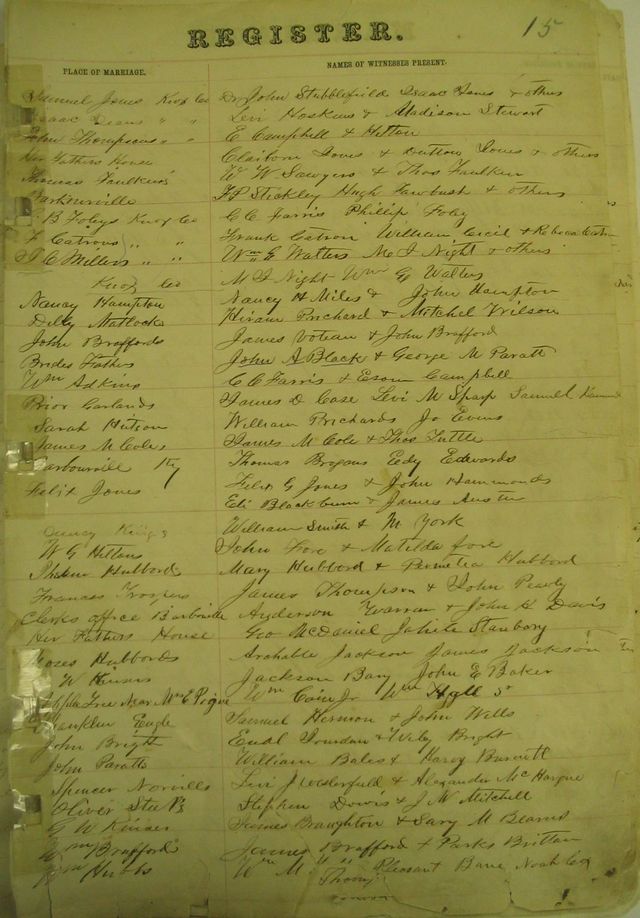 15
REGISTER.
PLACE OF MARRIAGE. NAMES OF WITNESSES PRESENT.
Samuel Jones Knox Co Dr John Stubblefield Isaac Jones & others
Isaac Deans " " Levi Hoskins & Madison Stewart
John Thompsons " " E Campbell & Hetton
Her Fathers House Claiborn Jones & Jones & others
Thomas Faulkners W W Sawyers & Thos Faulkner
Barbourville T P Stickley Hugh & others
B Foleys Knox Co C C Farris Phillip Foley
F Catrons " " Frank Catron William Cecil & Rebecca Catron
J C Millers " " Wm G Walters M J Night & others
Knox Co M J Night Wm G Walters
Nancy Hampton Nancy H Miles & John Hampton
Dilly Matlocks Hiram Prichard & Mitchel Wilson
John Braffords James & John Brafford
Brides Father John A Black & George M Paratt
Wm Adkins C C Farris & Esom Campbell
Prior Garlands James D Case Levi M Sharp Samuel
Sarah Hutson William Prichards Jo Evins
James M Coles James M Cole & Thos Tuttle
Barbourville Ky Thomas Brogans Edy Edwards
Felix Jones Felix G Jones & John Hammonds
Eli Blackburn & James Austin
Nancy Kings William Smith & M York
W G Hiltons John Fore & Matilda fore
Hubbord Mary Hubbord & Permelia Hubbord
Frances Trospers James Thompson & John Peady
Clerks office Barbourville Anderson Warren & John H Davis
Her Fathers House Geo McDaniel Stanbery
Moses Hubbords Archable Jackson James Jackson
W Jackson Bary John E Baker
Apple Tree Near Wm E Pogue Wm Cain Jr Wm Hall Sr
Franklin Engle Samuel Hermon & John Wells
John Bright & Wily Bright
John Paratts William Bales & Harvy Burnett
Spencer Norvills Levi J Westerfield & Alexander McHargue
Oliver Steels Stephen Dowis & J W Mitchell
G W Kinser James Broughton & Gary M Beams
Wm Braffords James Brafford & Parks Brittan
Wm Hubbs Wm M " " Pleasant Bane Noah Cox